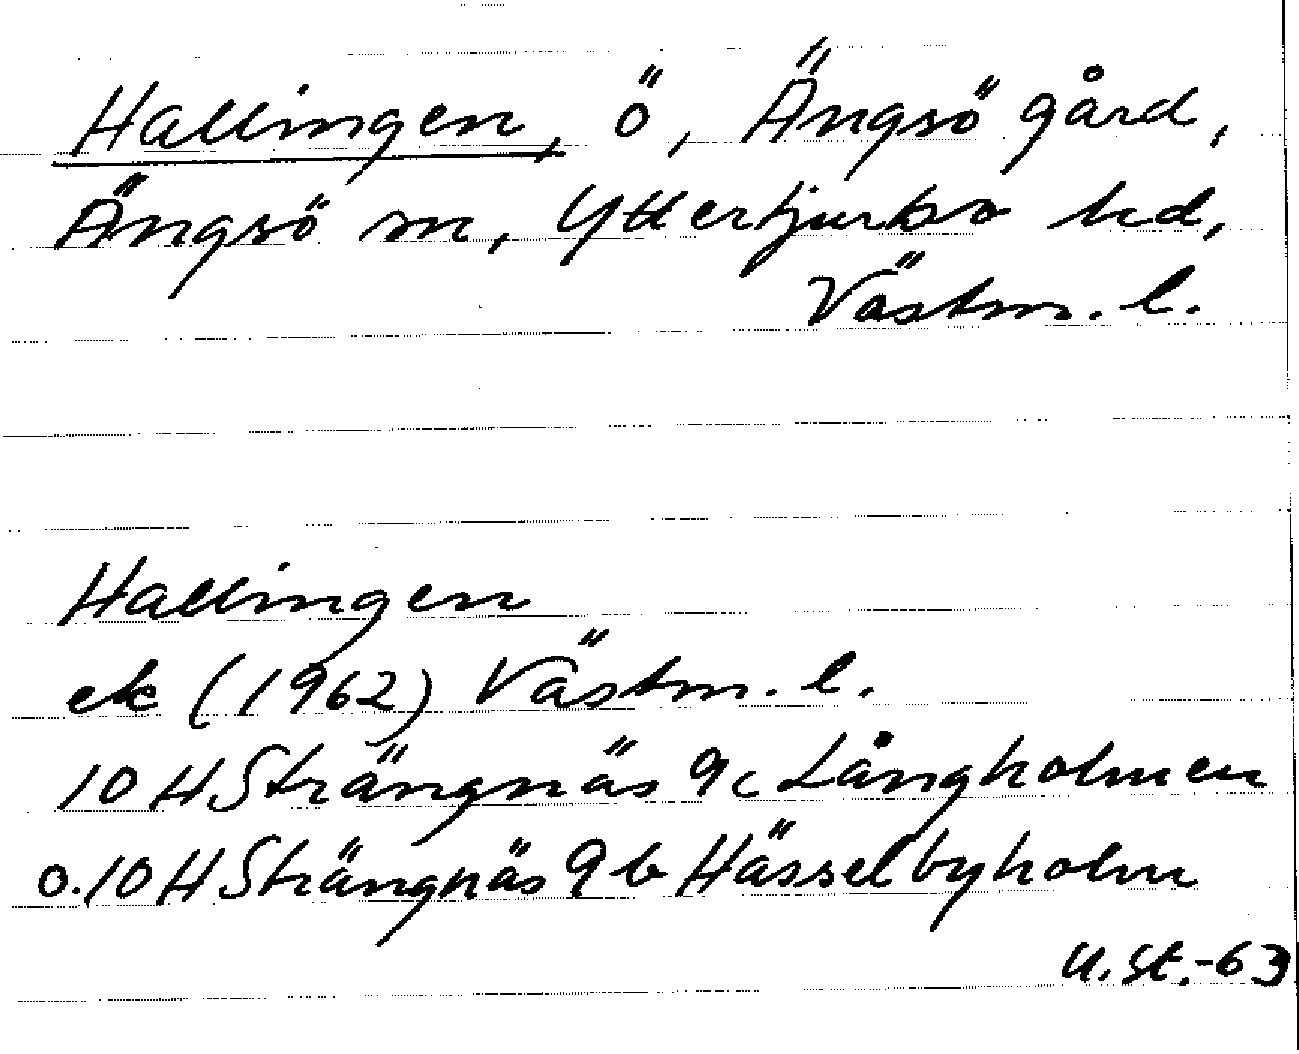 Hallingen, ö, Ängsö gård,
Ängsö sn, Yttertjurbo hd,
Västm. l.
Hallingen
ek (1962) Västm. l.
10 H Strängnäs 9c Långholmen
o. 10 H Strängnäs 9b Hässelbyholm
U. St. -63